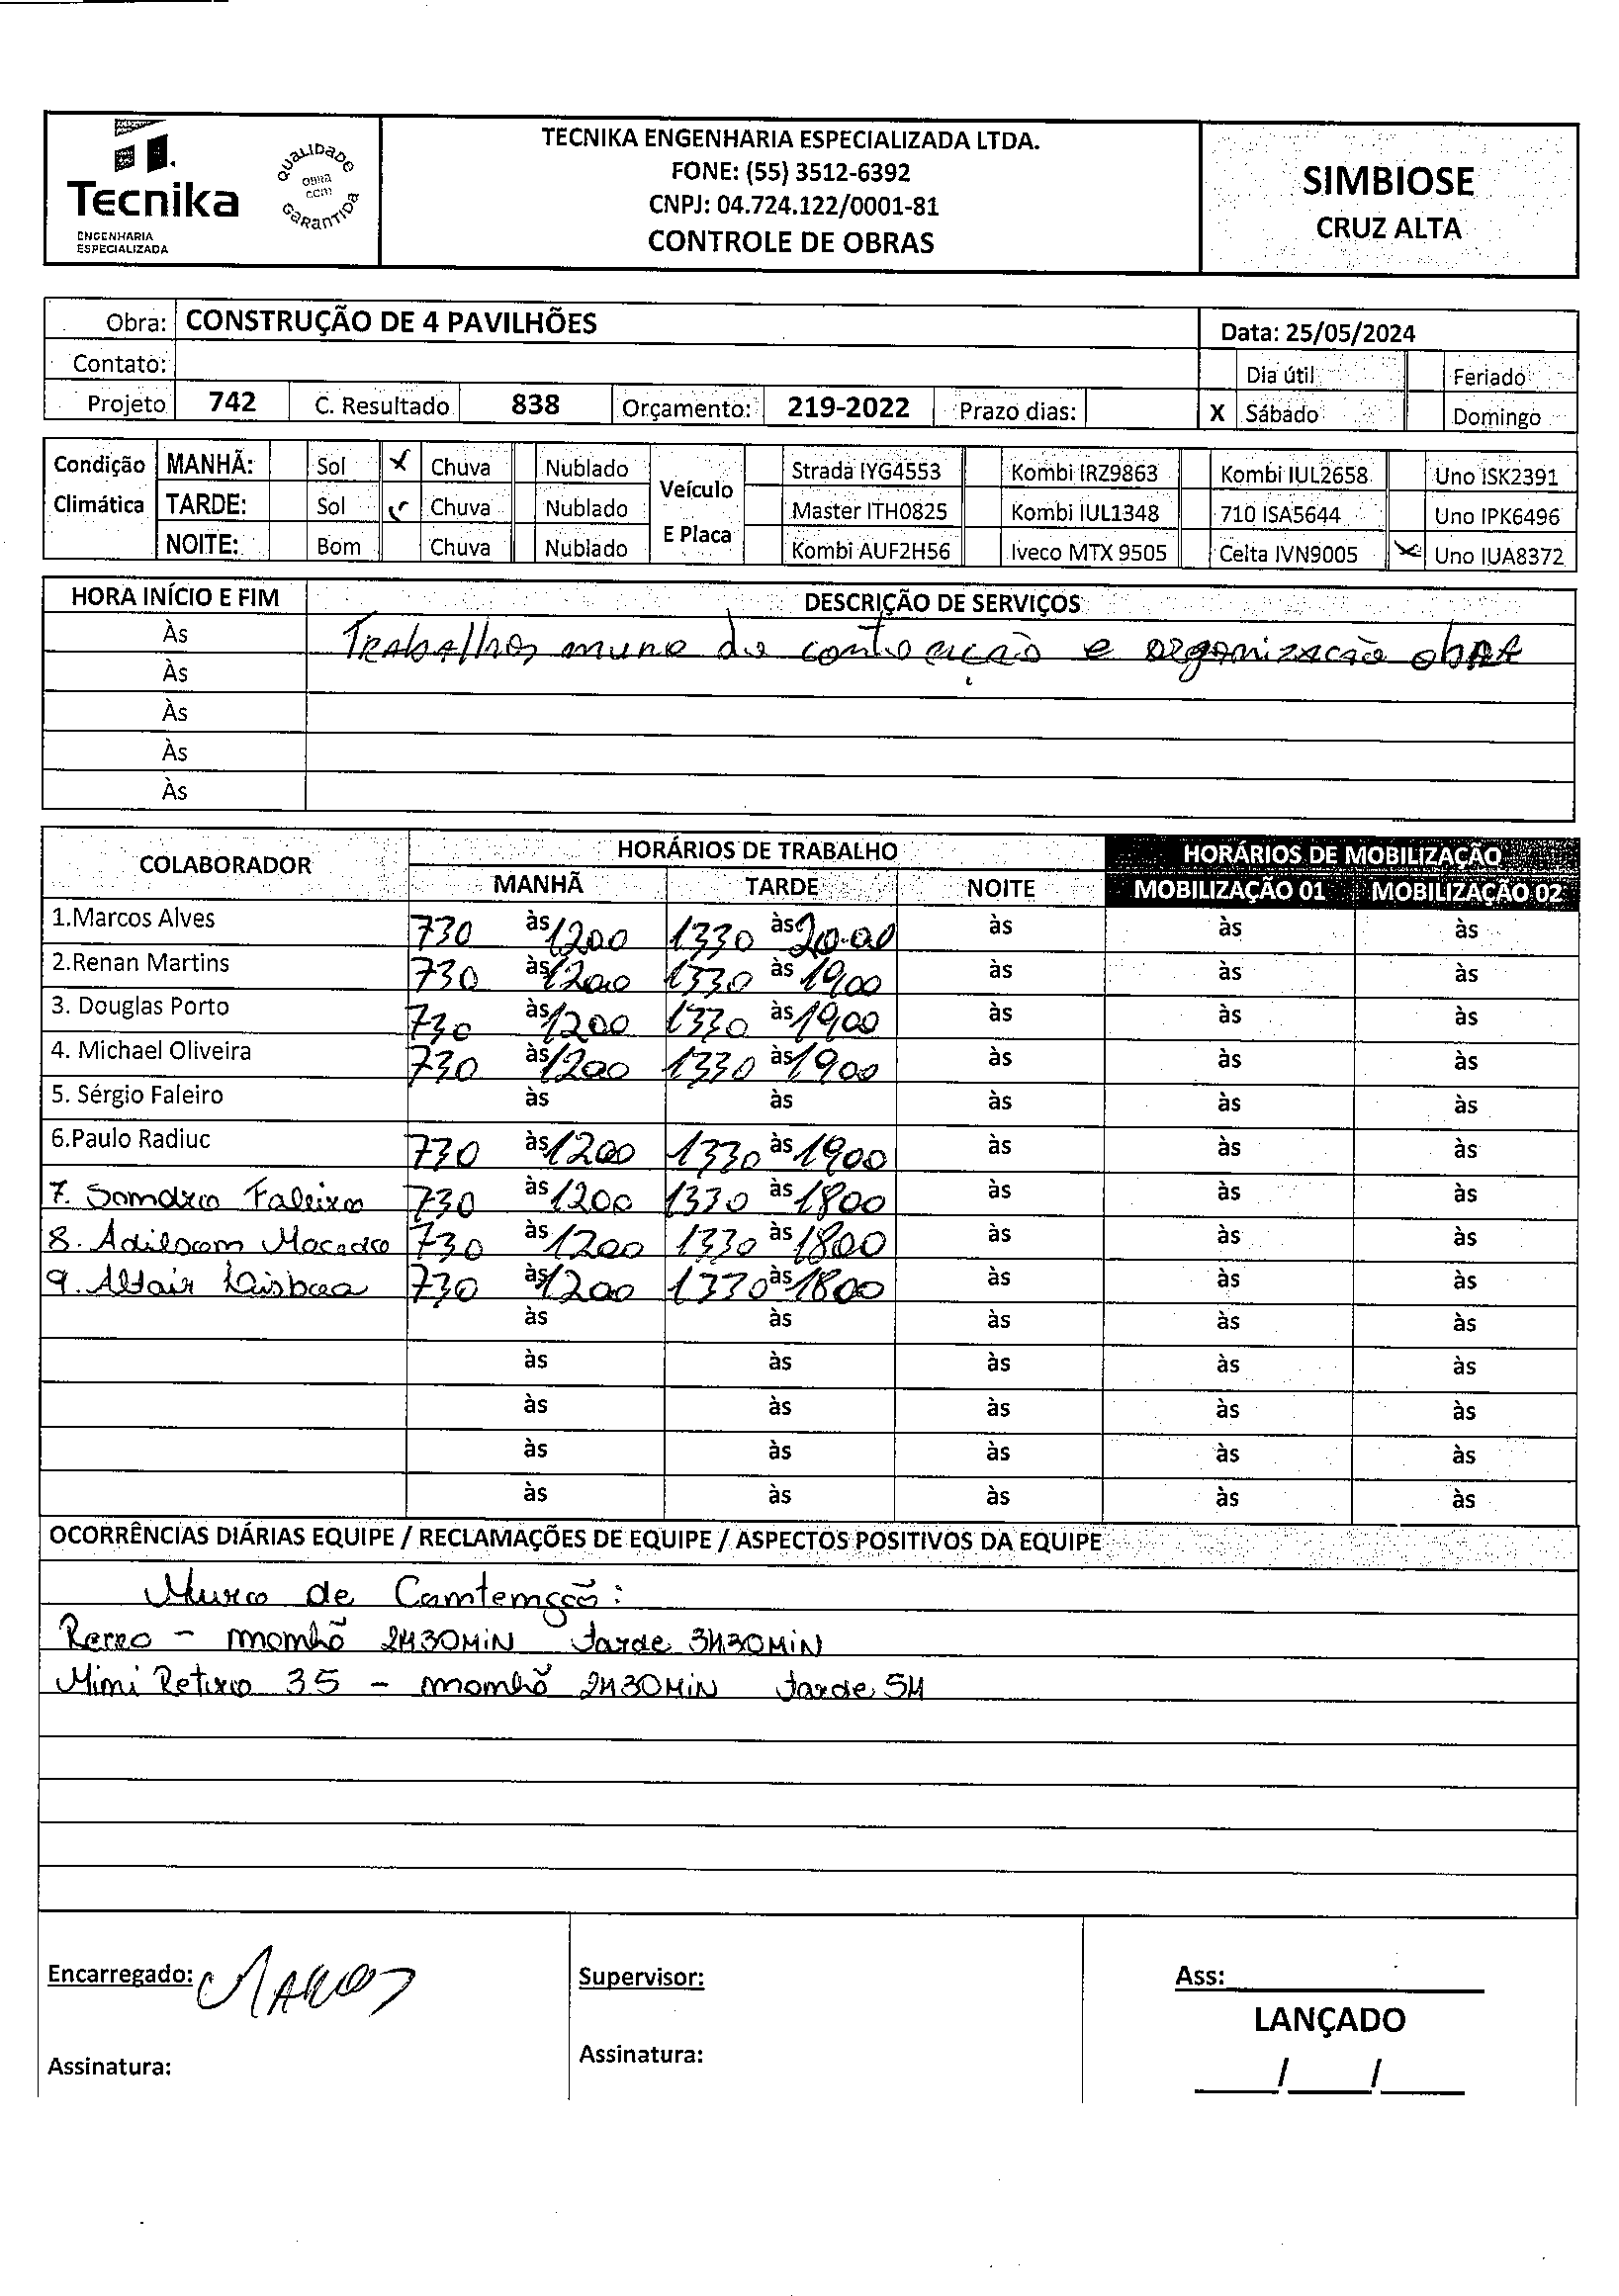 Tecnika
ENGENHARIA
ESPECIALIZADA
QUALIDADE
OBRA
COM
GARANTIDA
TECNIKA ENGENHARIA ESPECIALIZADA LTDA.
FONE: (55) 3512-6392
CNPJ: 04.724.122/0001-81
CONTROLE DE OBRAS
SIMBIOSE
CRUZ ALTA
Obra: CONSTRUÇÃO DE 4 PAVILHÕES Data: 25/05/2024
Contato: Dia útil Feriado
Projeto 742 C. Resultado 838 Orçamento: 219-2022 Prazo dias: X Sábado Domingo
Condição MANHÃ: Sol X Chuva Nublado Veículo Strada IYG4553 Kombi IRZ9863 Kombi IUL2658 Uno ISK2391
Climática TARDE: Sol Chuva Nublado E Placa Master ITH0825 Kombi IUL1348 710 ISA5644 Uno IPK6496
NOITE: Bom Chuva Nublado Kombi AUF2H56 Iveco MTX 9505 Celta IVN9005 X Uno IUA8372
HORA INÍCIO E FIM DESCRIÇÃO DE SERVIÇOS
Às Trabalhos muro de e organização obra
Às
Às
Às
Às
COLABORADOR HORÁRIOS DE TRABALHO HORÁRIOS DE MOBILIZAÇÃO
MANHÃ TARDE NOITE MOBILIZAÇÃO 01 MOBILIZAÇÃO 02
1.Marcos Alves 730 às 1200 1330 às 20.00 às às às
2.Renan Martins 730 às 1200 1330 às 1900 às às às
3. Douglas Porto 730 às 1200 1330 às 1900 às às às
4. Michael Oliveira 730 às 1200 1330 às 1900 às às às
5. Sérgio Faleiro às às às às às
6.Paulo Radiuc 730 às 1200 1330 às 1900 às às às
7. Sandro Faleiro 730 às 1200 1330 às 1800 às às às
8. Adilson Macedo 730 às 1200 1330 às 1800 às às às
9. Altair Lisboa 730 às 1200 1330 às 1800 às às às
às às às às às
às às às às às
às às às às às
às às às às às
às às às às às
OCORRÊNCIAS DIÁRIAS EQUIPE / RECLAMAÇÕES DE EQUIPE / ASPECTOS POSITIVOS DA EQUIPE
Muro de Contenção:
- manhã 2H30MIN tarde 3H30MIN
Mini Retiro 35 - manhã 2H30MIN tarde 5H
Encarregado: Marcos Supervisor: Ass:
LANÇADO
Assinatura: Assinatura: / /